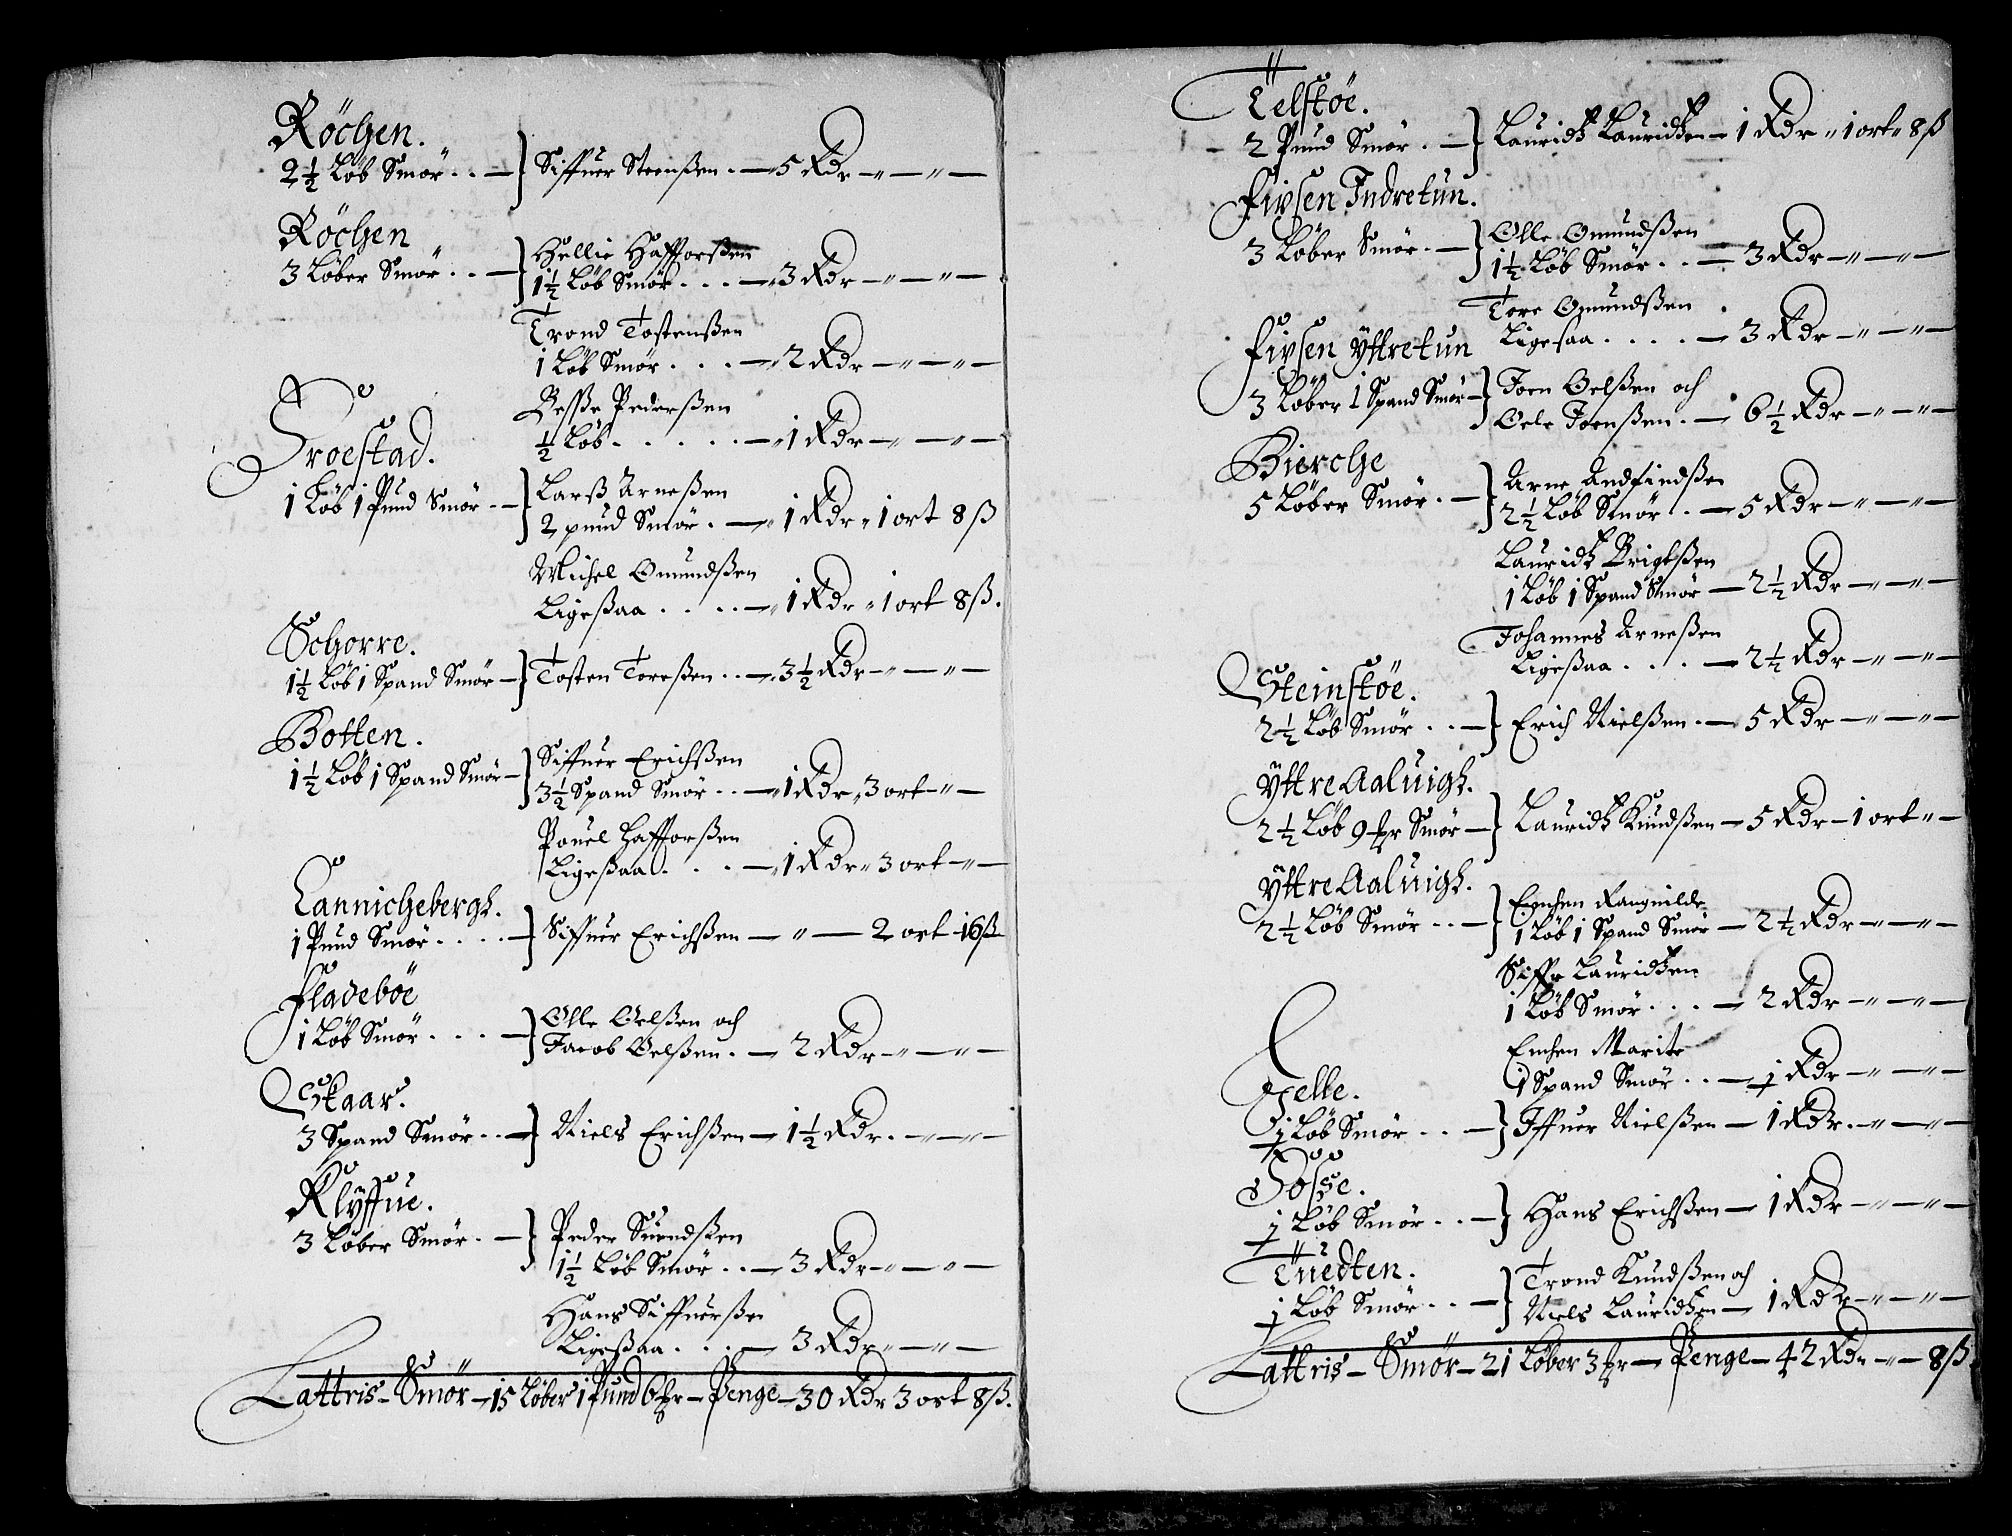 Röchen.
2½ Løb Smör . . — } Siffuer Steenßen . — 5 Rdr — „ — „ —
Röchen
3 Løber Smör . . — } Hellie Hafforßen
1½ Løb Smör . . . — 3 Rdr — „ — „ —
Trond Tostenßen
1 Løb Smör . . . — 2 Rdr — „ — „ —
Beßße Pederßen
½ Løb . . . . . — „ 1 Rdr — „ — „ —
Froestad.
1 Løb 1 Pund Smör — } Larß Arneßen
2 pund Smör . — „ 1 Rdr „ 1 ort 8 ß
Michel Omundßen
Ligeßaa . . . . — „ 1 Rdr „ 1 ort 8 ß.
Schorre.
1½ Løb 1 Spand Smör — } Tosten Toreßen . . — 3½ Rdr — „ — „ —
Botten.
1½ Løb 1 Spand Smör — } Siffuer Erichßen
3½ Spand Smör . . — „ 1 Rdr „ 3 ort — „ —
Pouel Hafforßen
Ligeßaa . . . — „ 1 Rdr „ 3 ort — „ —
Lannichebergh.
1 Pund Smör . . . . — } Siffuer Erichßen — „ — 2 ort 16 ß
Fladeböe
1 Løb Smör . . . — } Olle Oelßen och
Jacob Oelßen . — 2 Rdr — „ — „ —
Skaar.
3 Spand Smör . . — } Niels Erichßen — 1½ Rdr . — „ — „ —
Klÿffue.
3 Løber Smör . — } Peder Suendßen
1½ Løb Smör . . — 3 Rdr — „ — „ —
Hans Siffuerßen
Ligeßaa . . . — 3 Rdr — „ — „ —
Lattris — Smör — 15 Løber 1 Pund 6 ℔r — Penge — 30 Rdr 3 ort 8 ß.
Telstöe.
2 Pund Smör . — } Lauridtz Lauridtzen — 1 Rdr „ 1 ort „ 8 ß
Fivsen Indretun.
3 Løber Smör . — } Olle Omundßen
1½ Løb Smör . . — 3 Rdr — „ — „ —
Tore Omundßen
Ligesaa . . . . — 3 Rdr — „ — „ —
Fivsen Ÿttretun
3 Løber 1 Spand Smör — } Joen Oelßen och
Oele Joenßen . — 6½ Rdr — „ — „ —
Bierche
5 Løber Smör . — } Arne Andfindßen
2½ Løb Smör . . — 5 Rdr — „ — „ —
Lauridtz Brigtßen
1 Løb 1 Spand Smör — 2½ Rdr — „ — „ —
Johannes Arneßen
Ligeßaa . . . . — 2½ Rdr — „ — „ —
Steinstöe.
2½ Løb Smör . . — } Erich Nielßen . — 5 Rdr — „ — „ —
Ÿttre Aaluigh.
2½ Løb 9 ℔r Smör — } Lauridtz Knudßen — 5 Rdr — 1 ort „ —
Ÿttre Aaluigh.
2½ Løb Smör . . — } Enchen Ragnilde
1 Løb 1 Spand Smör — 2½ Rdr — „ — „ —
Siffr Lauridtzen
1 Løb Smör . . . — 2 Rdr — „ — „ —
Enchen Marite
1 Spand Smör . . — 1 Rdr — „ — „ —
Gelle.
½ Løb Smör . . — } Iffuer Nielßen — 1 Rdr . — „ — „ —
Dösse.
½ Løb Smör . . — } Hans Erichßen — 1 Rdr — „ — „ —
Tuedten.
½ Løb Smör . . — } Trond Knudßen och
Niels Lauridtzen — 1 Rdr — „ — „ —
Lattris — Smör — 21 Løber 3 ℔r — Penge — 42 Rdr — „ — 8 ß